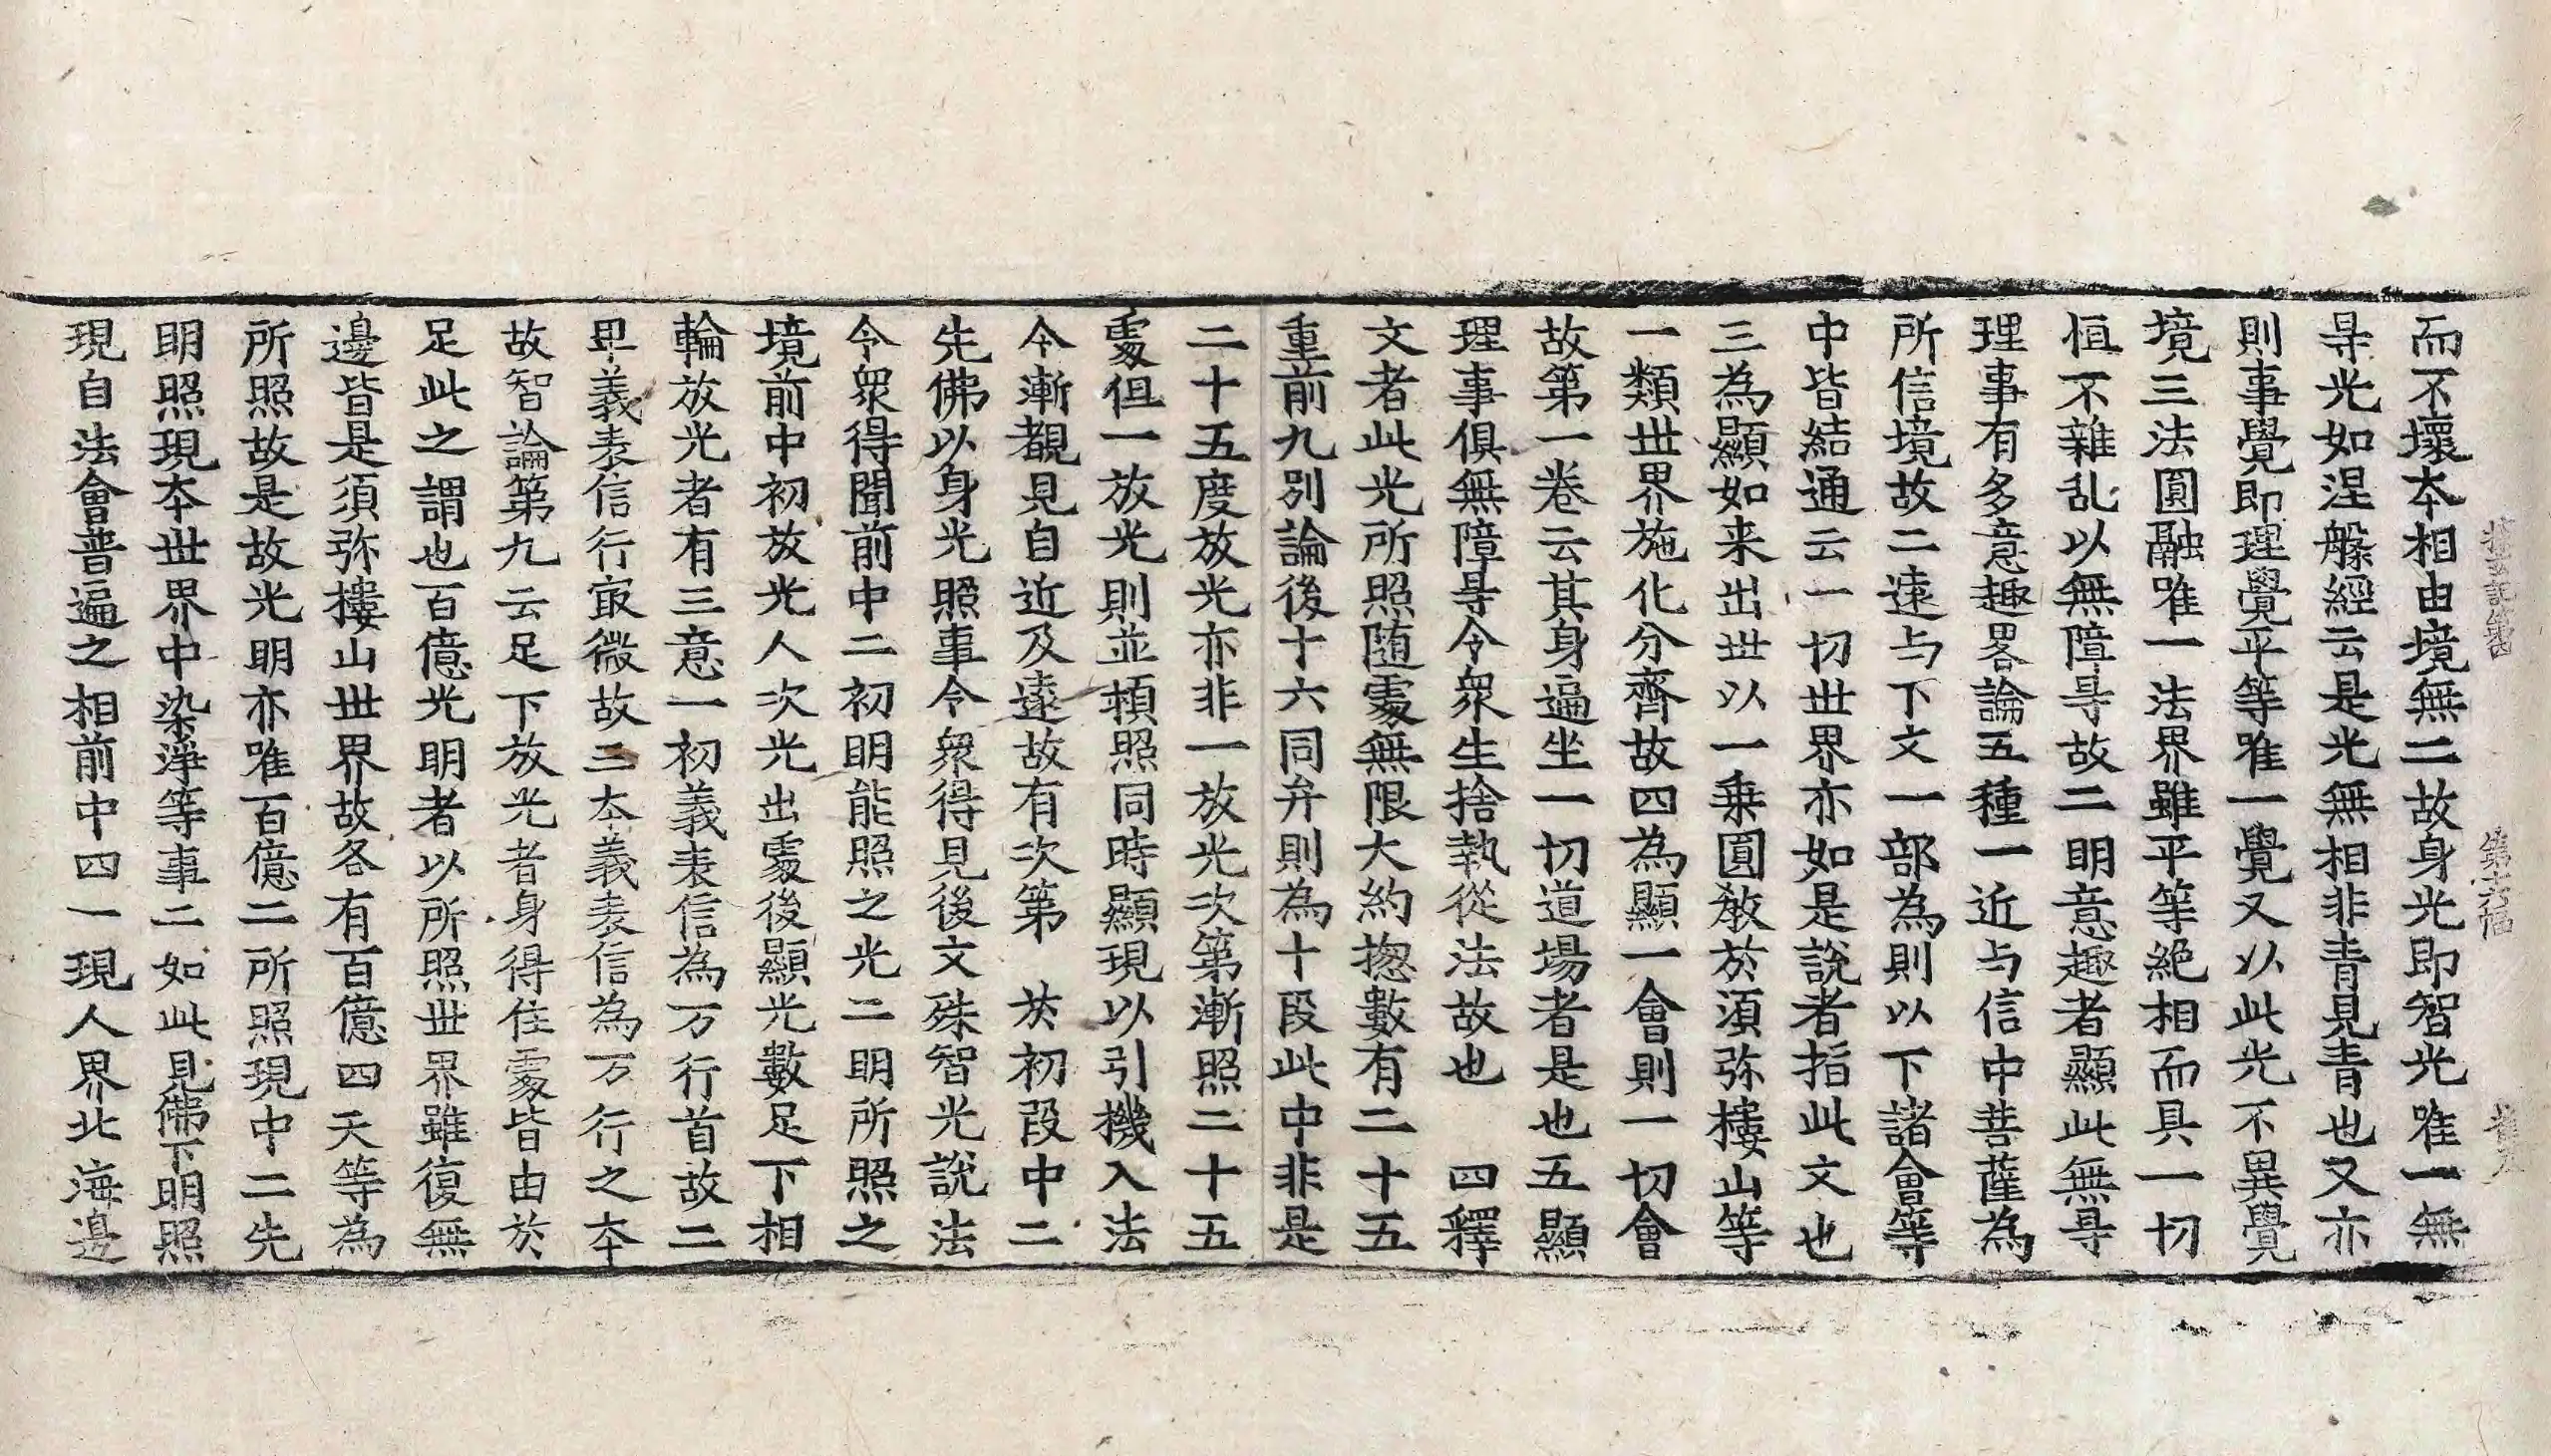 探玄記第四 第十六幅
而不壞本相由境無二故身光即智光唯一無
㝵光如涅槃經云是光無相非青見青也又亦
則事覺即理覺平等唯一覺又以此光不異覺
境三法圓融唯一法界雖平等絶相而具一切
恒不雜乱以無障㝵故二明意趣者顯此無㝵
理事有多意趣畧論五種一近与信中菩薩為
所信境故二遠与下文一部為則以下諸會等
中皆結通云一切世界亦如是說者指此文也
三為顯如来出世以一乗圓教於須弥樓山等
一類世界施化分齊故四為顯一會則一切會
故第一卷云其身遍坐一切道場者是也五顯
理事俱無障㝵令衆生捨執從法故也 四釋
文者此光所照随處無限大約揔數有二十五
重前九別論後十六同弁則為十段此中非是
二十五度放光亦非一放光次第漸照二十五
處但一放光則並頓照同時顯現以引機入法
今漸覩見自近及遠故有次第 於初段中二
先佛以身光照事令衆得見後文殊智光說法
令衆得聞前中二初明能照之光二明所照之
境前中初放光人次光出處後顯光數足下相
輪放光者有三意一初義表信為万行首故二
卑義表信行㝡微故三本義表信為万行之本
故智論第九云足下放光者身得住處皆由於
足此之謂也百億光明者以所照世界雖復無
邊皆是須弥樓山世界故各有百億四天等為
所照故是故光明亦唯百億二所照現中二先
明照現本世界中染淨等事二如此見佛下明照
現自法會普遍之相前中四一現人界北海邊